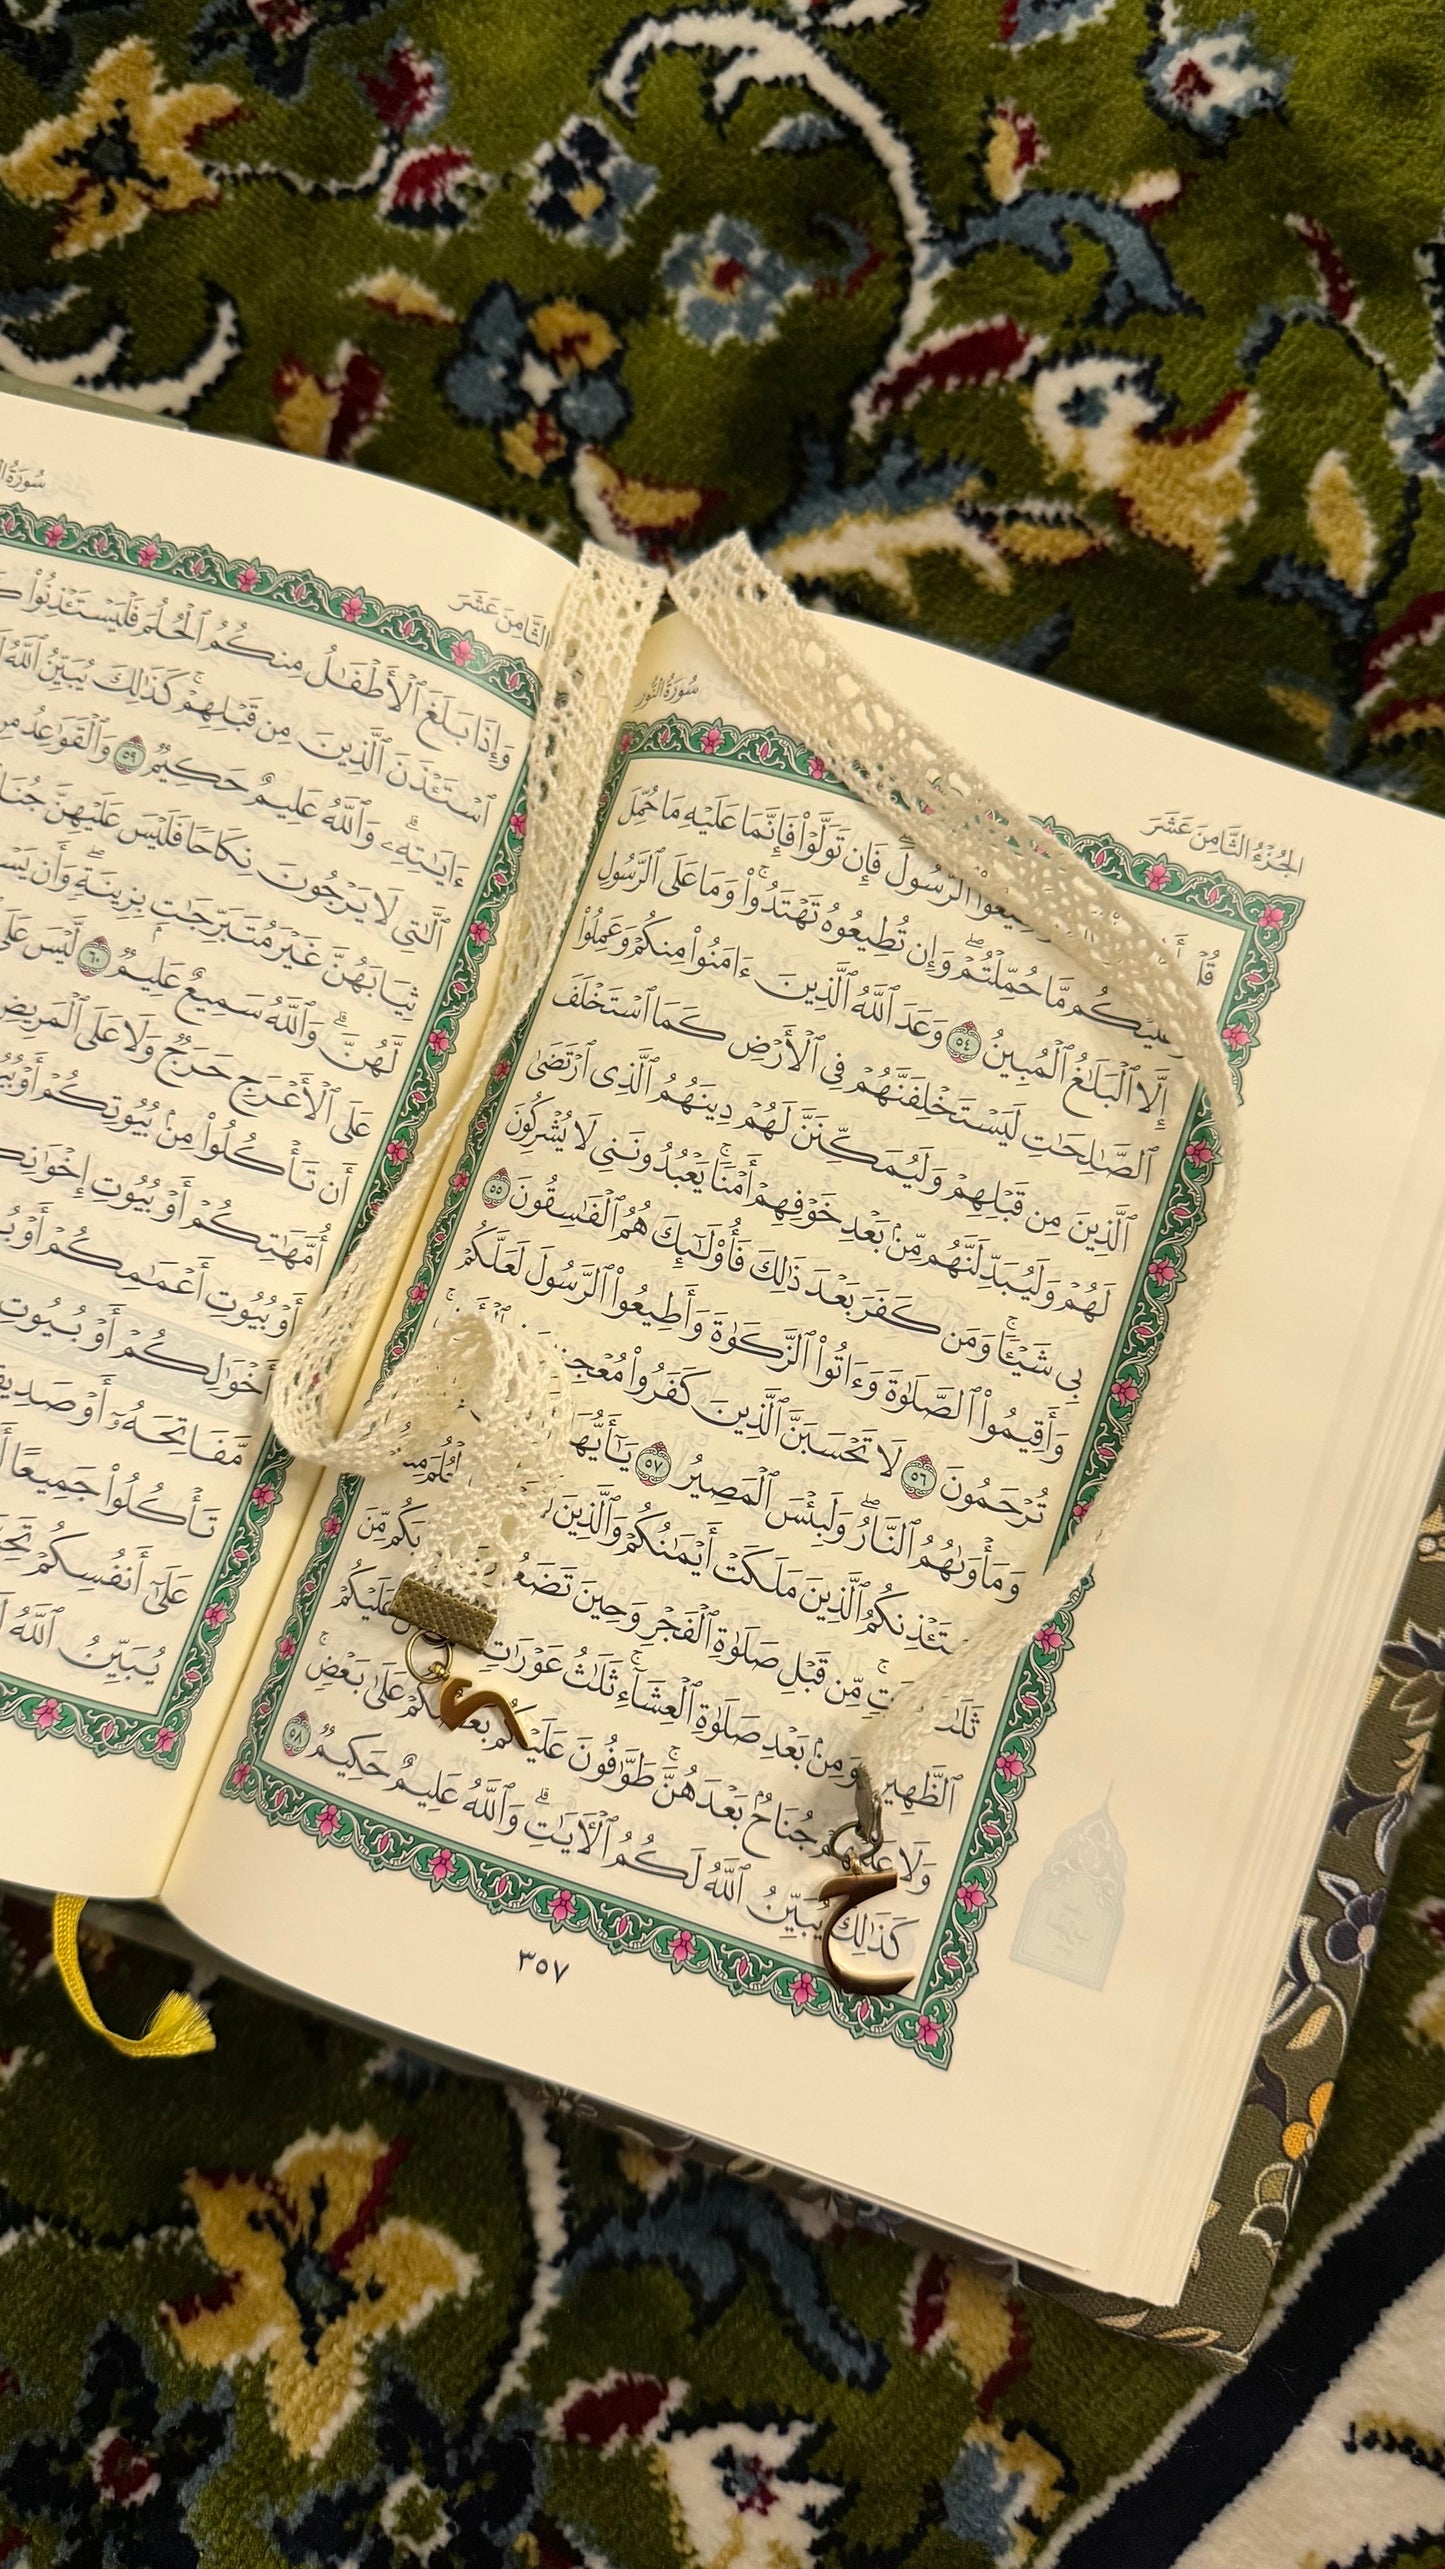 سُورَةُ النُّورِ
الجُزْءُ الثَّامِنَ عَشَرَ
الرَّسُولَۖ فَإِن تَوَلَّوۡاْ فَإِنَّمَا عَلَيۡهِ مَا حُمِّلَ
وَعَلَيۡكُم مَّا حُمِّلۡتُمۡۖ وَإِن تُطِيعُوهُ تَهۡتَدُواْۚ وَمَا عَلَى ٱلرَّسُولِ
إِلَّا ٱلۡبَلَٰغُ ٱلۡمُبِينُ ٥٤ وَعَدَ ٱللَّهُ ٱلَّذِينَ ءَامَنُواْ مِنكُمۡ وَعَمِلُواْ
ٱلصَّٰلِحَٰتِ لَيَسۡتَخۡلِفَنَّهُمۡ فِي ٱلۡأَرۡضِ كَمَا ٱسۡتَخۡلَفَ
ٱلَّذِينَ مِن قَبۡلِهِمۡ وَلَيُمَكِّنَنَّ لَهُمۡ دِينَهُمُ ٱلَّذِي ٱرۡتَضَىٰ
لَهُمۡ وَلَيُبَدِّلَنَّهُم مِّنۢ بَعۡدِ خَوۡفِهِمۡ أَمۡنٗاۚ يَعۡبُدُونَنِي لَا يُشۡرِكُونَ
بِي شَيۡـٔٗاۚ وَمَن كَفَرَ بَعۡدَ ذَٰلِكَ فَأُوْلَٰٓئِكَ هُمُ ٱلۡفَٰسِقُونَ ٥٥
وَأَقِيمُواْ ٱلصَّلَوٰةَ وَءَاتُواْ ٱلزَّكَوٰةَ وَأَطِيعُواْ ٱلرَّسُولَ لَعَلَّكُمۡ
تُرۡحَمُونَ ٥٦ لَا تَحۡسَبَنَّ ٱلَّذِينَ كَفَرُواْ مُعۡجِزِينَ
وَمَأۡوَىٰهُمُ ٱلنَّارُۖ وَلَبِئۡسَ ٱلۡمَصِيرُ ٥٧ يَٰٓأَيُّهَا
مَلَكَتۡ أَيۡمَٰنُكُمۡ وَٱلَّذِينَ
ٱلَّذِينَ
مِّن قَبۡلِ صَلَوٰةِ ٱلۡفَجۡرِ وَحِينَ تَضَعُونَ
ٱلظَّهِيرَةِ وَمِنۢ بَعۡدِ صَلَوٰةِ ٱلۡعِشَآءِۚ ثَلَٰثُ عَوۡرَٰتٖ عَلَيۡكُمۡ
وَلَا جُنَاحُۢ بَعۡدَهُنَّۚ طَوَّٰفُونَ عَلَيۡكُم بَعۡضُكُمۡ عَلَىٰ بَعۡضٖۚ
كَذَٰلِكَ يُبَيِّنُ ٱللَّهُ لَكُمُ ٱلۡأٓيَٰتِۗ وَٱللَّهُ عَلِيمٌ حَكِيمٞ ٥٨
٣٥٧
الثَّامِنَ عَشَرَ
وَإِذَا بَلَغَ ٱلۡأَطۡفَٰلُ مِنكُمُ ٱلۡحُلُمَ فَلۡيَسۡتَـٔۡذِنُواْ
ٱسۡتَـٔۡذَنَ ٱلَّذِينَ مِن قَبۡلِهِمۡۚ كَذَٰلِكَ يُبَيِّنُ ٱللَّهُ
ءَايَٰتِهِۦۗ وَٱللَّهُ عَلِيمٌ حَكِيمٞ ٥٩ وَٱلۡقَوَٰعِدُ مِنَ
ٱلَّٰتِي لَا يَرۡجُونَ نِكَاحٗا فَلَيۡسَ عَلَيۡهِنَّ
ثِيَابَهُنَّ غَيۡرَ مُتَبَرِّجَٰتِۭ بِزِينَةٖۖ وَأَن
لَّهُنَّۗ وَٱللَّهُ سَمِيعٌ عَلِيمٞ ٦٠ لَّيۡسَ عَلَى
عَلَى ٱلۡأَعۡرَجِ حَرَجٞ وَلَا عَلَى ٱلۡمَرِيضِ
أَن تَأۡكُلُواْ مِنۢ بُيُوتِكُمۡ أَوۡ
أُمَّهَٰتِكُمۡ أَوۡ بُيُوتِ
أَوۡ بُيُوتِ أَعۡمَٰمِكُمۡ أَوۡ
أَخۡوَٰلِكُمۡ أَوۡ بُيُوتِ
مَّفَاتِحَهُۥٓ أَوۡ
تَأۡكُلُواْ جَمِيعًا
عَلَىٰٓ أَنفُسِكُمۡ
يُبَيِّنُ ٱللَّهُ
ي
خ